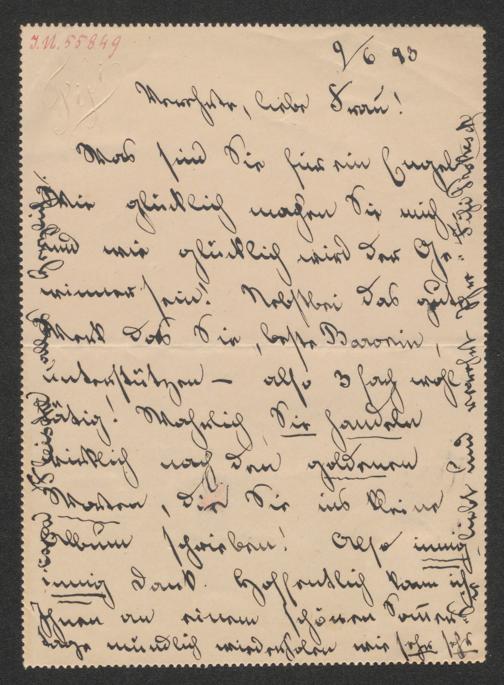 J.N. 55849
9/6 93
Verehrte, liebe Frau!
Was sind Sie für ein Engel
Wie glücklich machen Sie mich
und wie glücklich wird der Ge-
winner sein! Nebstbei das gute
Werk das Sie, beste Baronin,
unterstützen – also 3fach wohl
tätig! Wahrlich Sie handeln
wirklich nach den goldenen
Worten, die Sie ins kleine
Album schrieben! Also innig
innig Dank. Hoffentlich kann ich
Ihnen an einem schönen Sommer-
tage mündlich wiederholen wie sehr sehr
Sie liebt und verehrt Ihre